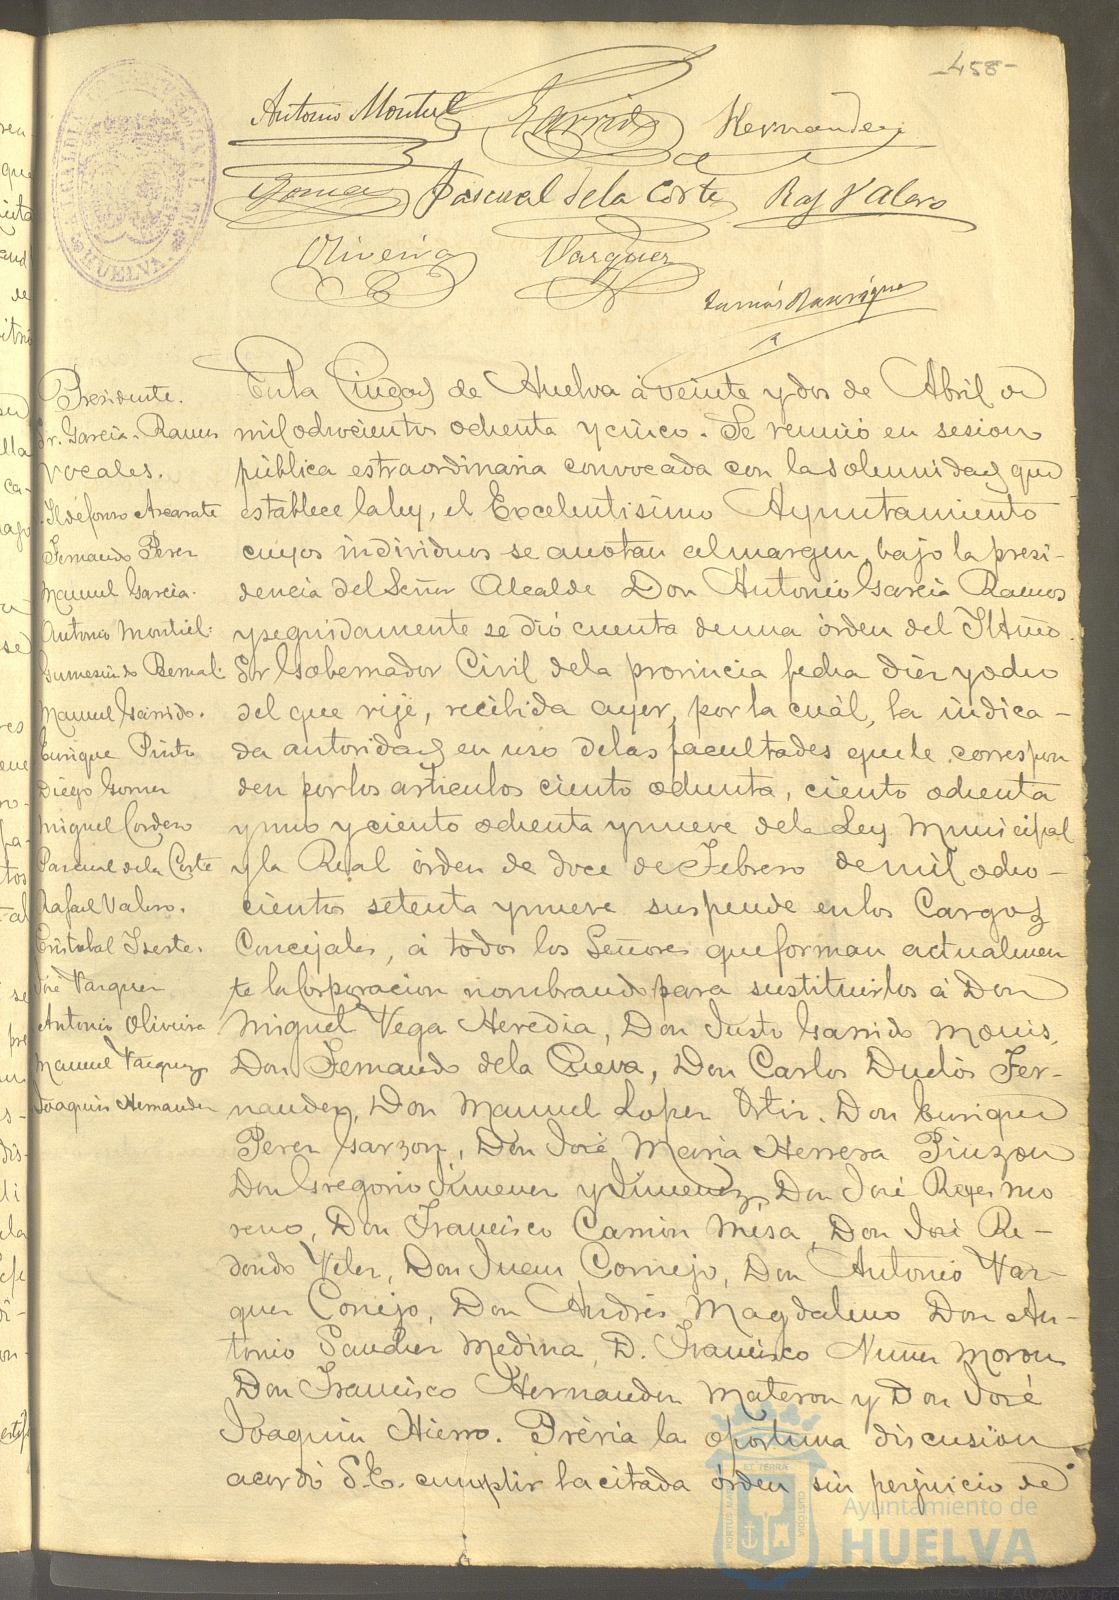 -458-
Antonio Montiel Garrido Hernandez
Gomez Pascual de la Corte Raf Valero
Oliveira Vazquez
HUELVA
Presidente.
Sr. Garcia Ramos
vocales.
Ildefonso Azcarate
Fernando Perez
Manuel Garcia.
Antonio Montiel.
Gumesindo Bernal.
Manuel Garrido.
Enrique Pinto
Diego Gomez
Miguel Cordero
Pascual de la Corte
Rafael Valero.
Cristobal Iserte.
José Vazquez
Antonio Oliveira
Manuel Vazquez
Joaquin Hernandez
En la Ciudad de Huelva á veinte y dos de Abril de
mil ochocientos ochenta y cinco. Se reunió en sesion
pública estraordinaria convocada con la solemnidad que
establece la ley, el Excelentisimo Ayuntamiento
cuyos individuos se anotan al margen, bajo la presi-
dencia del Señor Alcalde Don Antonio Garcia Ramos
y seguidamente se dió cuenta de una órden del Iltmo.
Sor Gobernador Civil de la provincia fecha diez y ocho
del que rije, recibida ayer, por la cuál, la indica-
da autoridad en uso de las facultades que le correspon
den por los articulos ciento ochenta, ciento ochenta
y uno y ciento ochenta y nueve de la Ley Municipal
y la Real órden de doce de Febrero de mil ocho-
cientos setenta y nueve suspende en los Cargos
Concejales, á todos los Señores que forman actualmen
te la Corporacion nombrando para sustituirlos á Don
Miguel Vega Heredia, Don Justo Garrido Monis,
Don Fernando de la Cueva, Don Carlos Duclós Fer-
nandez, Don Manuel Lopez Ortiz. Don Enrique
Perez Garzon, Don José Maria Herrera Pinzon
Don Gregorio Jimenez y Jimenez, Don José Reyes Mo-
reno, Don Francisco Camin Mesa, Don José Re-
dondo Velez, Don Juan Cornejo, Don Antonio Vaz-
quez Conejo, Don Andrés Magdaleno Don An-
tonio Sanchez Medina, D. Francisco Nuñez Moron
Don Francisco Hernandez Materon y Don José
Joaquin Hierro. Prévia la oportuna discusion
acordó S.E. cumplir la citada órden sin perjuicio de
PORTUS MARIS ET TERRÆ CUSTODIA
Ayuntamiento de
HUELVA